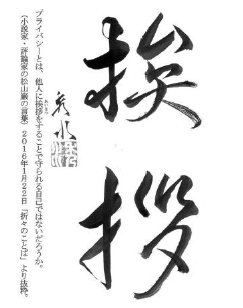 挨
拶
プライバシーとは、他人に挨拶をすることで守られる自己ではないだろうか。
あいさつ
(小説家・評論家の松山巖の言葉) 2016年1月22日『折々のことば』より抜粋。